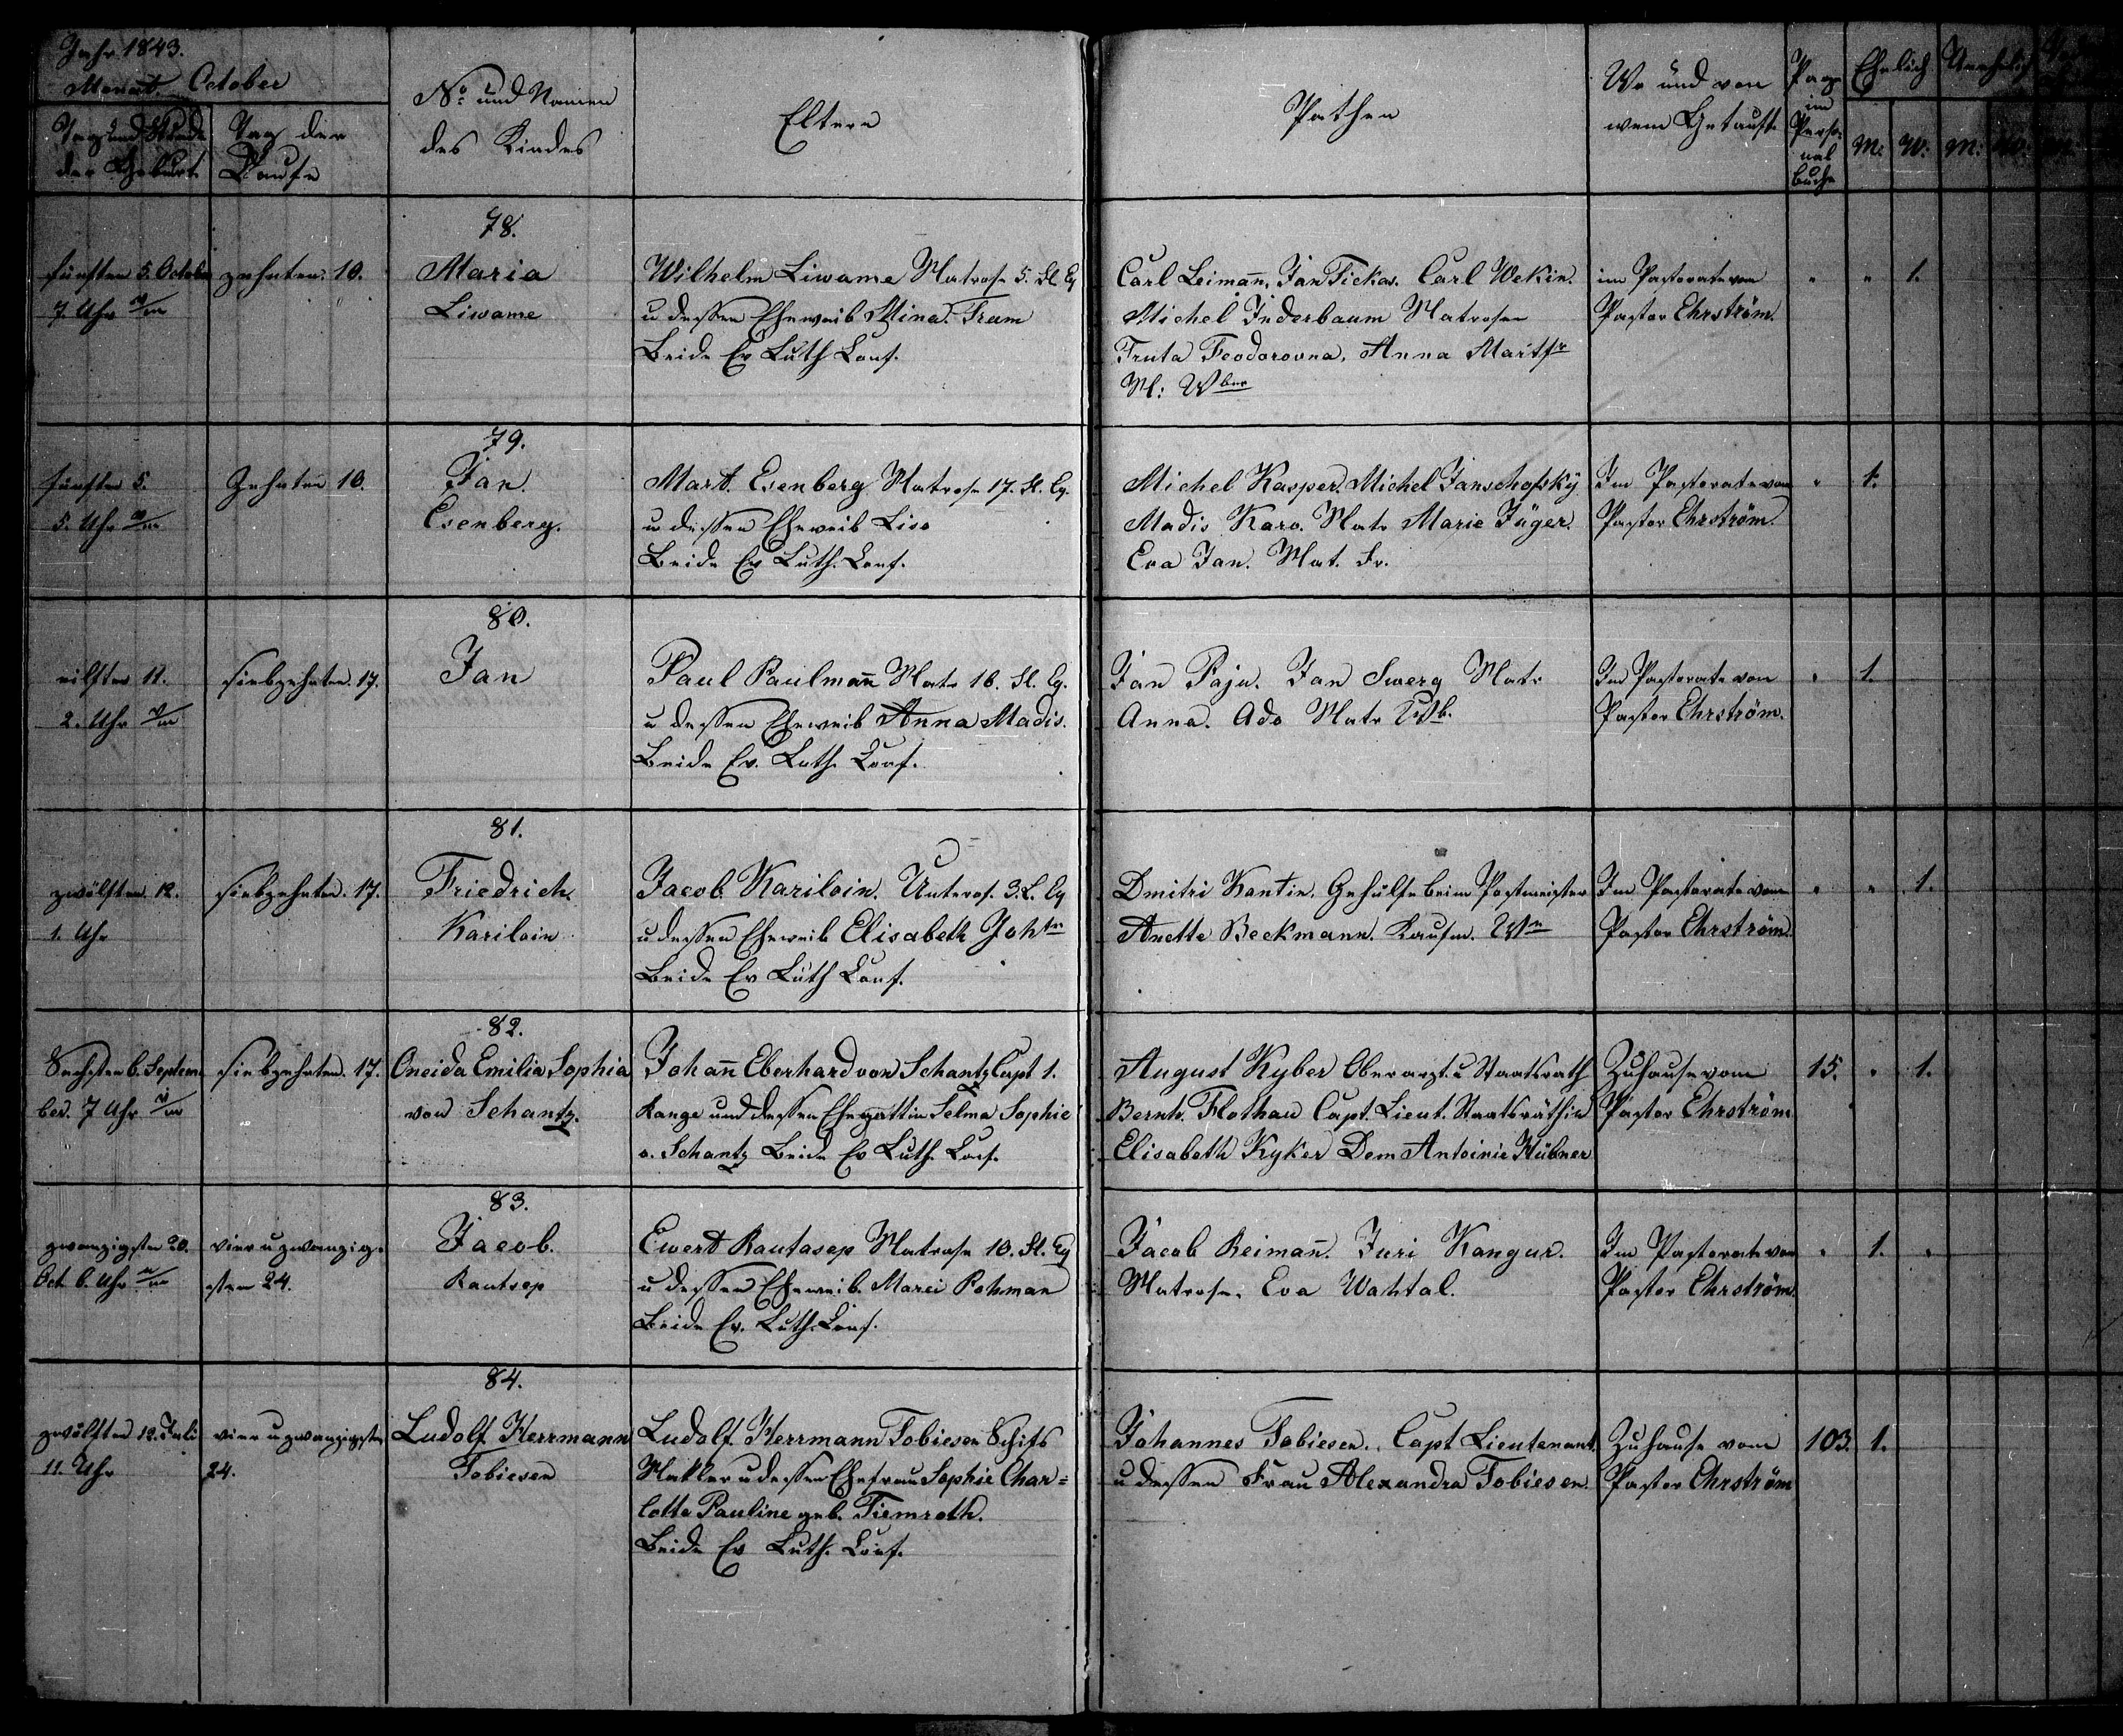 Jahr 1843.
Monat October
Tag und Stunde der Geburt
Tag der Taufe
No und Namen des Kindes
Eltern
Pathen
Wo und von wem Getauft
Pag im Perso- nal Buche
Ehelich
Unehelich
M: W: M: W:
78.
fünften 5. October
7. Uhr
zehnten 10.
Maria
Liwame
Wilhelm Liwame Matrose 5. Fl. Eq
u dessen Eheweib Mina Tram
Beide Ev Luth Conf.
Carl Leimañ. Jan Tickas. Carl Wekin.
Michel Inderbaum Matrosen
Truta Feodorovna, Anna Mart
M: Wber
im Pastorate von
Pastor Ehrström.
1.
79.
fünften 5.
5. Uhr
Zehnten 10.
Jan
Esenberg.
Mart. Esenberg Matrose 17. Fl. Eq.
u dessen Eheweib Liso
Beide Ev Luth. Conf.
Michel Kasper. Michel Janschofsky
Madis Karo. Matr Marie Jüger.
Eva Jan. Mat. Fr.
Im Pastorate von
Pastor Ehrström.
1.
80.
eilften 11.
2. Uhr
siebzehnten. 17.
Jan
Paul Paulmañ Matr 16. Fl. Eq.
u dessen Eheweib Anna Madis.
Beide Ev. Luth. Conf.
Jan Paju. Jan Swerg Matr
Anna. Ado Matr Wb.
Im Pastorate von
Pastor Ehrström.
1.
81.
zwölften. 12.
1. Uhr
siebzehnten. 17.
Friedrich
Kariloin
Jacob Kariloin. Unterof. 3. L. Eq
u dessen Eheweib Elisabeth Johtr
Beide Ev Luth Conf.
Dmitri Kantin. Gehülfe beim Postmeister
Anette Beckmann. Kaufm. Wn
Im Pastorate vom
Pastor Ehrström
1.
82.
Sechsten 6. Septem
ber. 7 Uhr
siebzehnten. 17.
Oneida Emilia Sophia
von Schantz.
Johañ Eberhard von Schantz Capt 1.
Range und dessen Ehegattin Selma Sophie
v. Schantz Beide Ev Luth. Conf.
August Kyber Oberarzt u Staatsrath
Bernh. Flothau Capt. Lieut. Staatsräthin
Elisabeth Kyker Dem Antoinie Hübner
Zuhause vom
Pastor Ehrström
15. 1.
83.
zwanzigsten 20.
Oct 6. Uhr
vier u zwanzig-
sten 24.
Jacob.
Rautsep
Ewert Rautasep Matrose 10. Fl. Eq
u dessen Eheweib Marei Pohman
Beide Ev. Luth. Conf.
Jacob Reimañ. Juri Kangur.
Matrosen. Eva Wahtal.
Im Pastorate von
Pastor Ehrström
1.
84.
zwölften 12. Juli
11. Uhr
vier u zwanzigsten
24.
Ludolf Herrmann
Tobiesen
Ludolf Herrmann Tobiesen Schifs
Makler u dessen Ehefrau Sophie Char=
lotte Pauline geb. Tiemroth.
Beide Ev Luth. Conf.
Johannes Tobiesen. Capt Lieutenant.
u dessen Frau Alexandra Tobiesen.
Zuhause vom
Pastor Ehrström
103. 1.